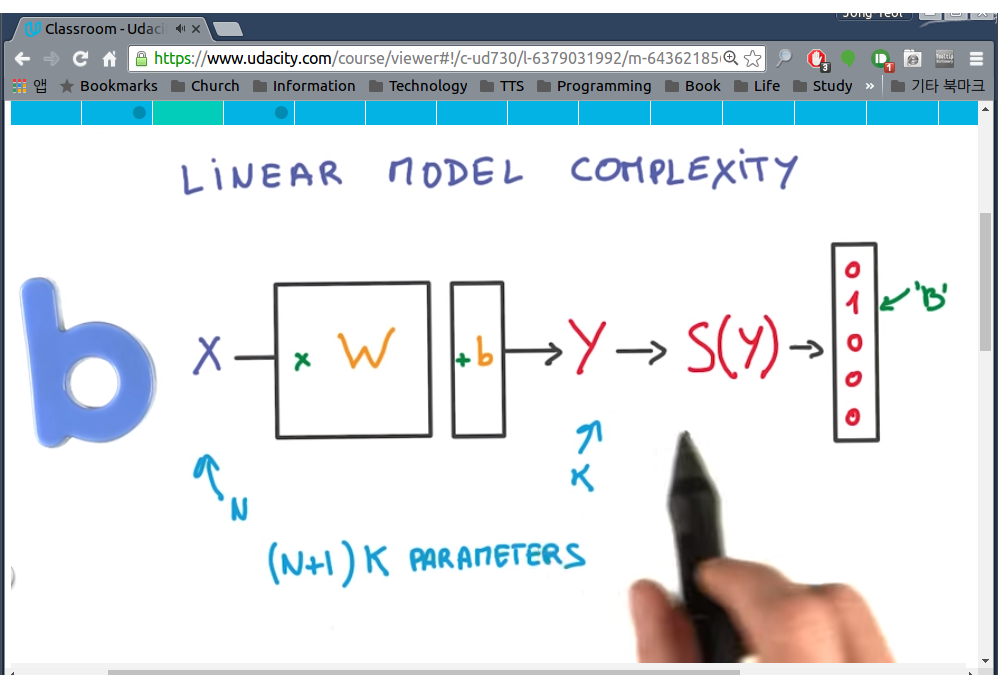 Classroom - Udaci
https://www.udacity.com/course/viewer#!/c-ud730/l-6379031992/m-64362185
앱 Bookmarks Church Information Technology TTS Programming Book Life Study » 기타 북마크
LINEAR MODEL COMPLEXITY
b X × W + b Y S(Y) 0 1 0 0 0 'B'
N K
(N+1) K PARAMETERS